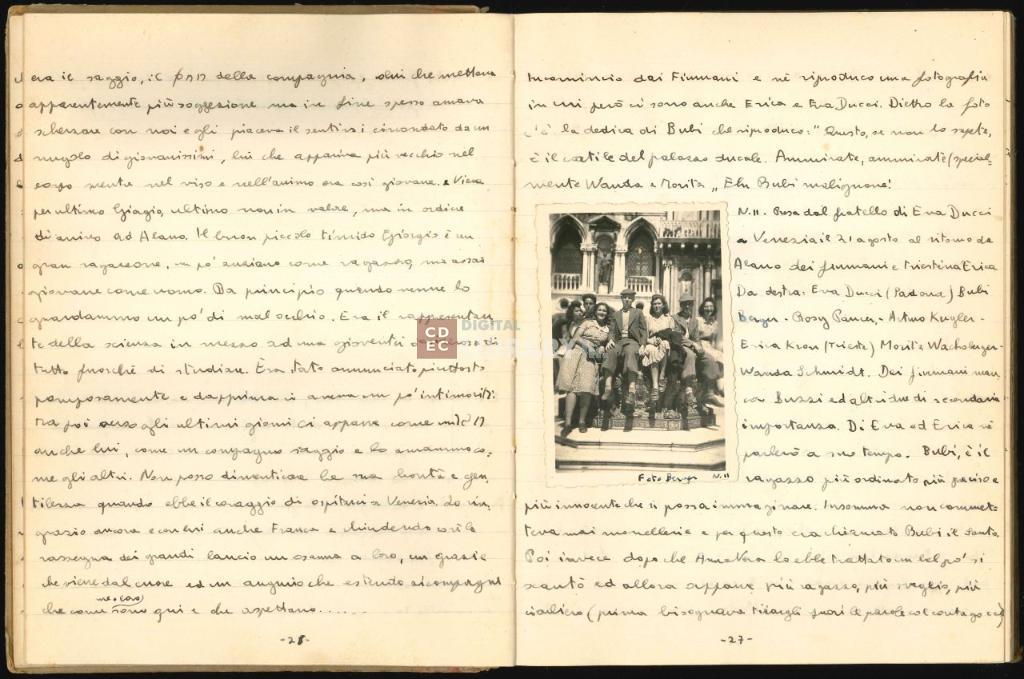 era il saggio, il più della compagnia, colui che metteva
apparentemente più soggezione ma in fine spesso amava
scherzare con noi e gli piaceva il sentirsi circondato da un
nugolo di giovanissimi, lui che appariva più vecchio nel
corpo mentre nel viso e nell'animo era così giovane. Viene
per ultimo Giorgio, ultimo non in valore, ma in ordine
di arrivo ad Alano. Il buon piccolo timido Giorgio è un
gran ragazzone, un po' anziano come ragazzo, ma assai
giovane come uomo. Da principio quando venne lo
guardammo un po' di mal occhio. Era il rappresentan
te della scienza in mezzo ad una gioventù di
tutto fuorché di studiare. Era stato annunciato piuttosto
pomposamente e dapprima ci aveva un po' intimoriti.
Ma poi verso gli ultimi giorni ci apparve come
anche lui, come un compagno saggio e lo amammo co-
me gli altri. Non posso dimenticare la sua bontà e gen
tilezza quando ebbe il coraggio di ospitarci a Venezia. Lo rin
grazio ancora e con lui anche Franca e chiudendo così la
rassegna dei grandi lancio un osanna a loro, un grazie
che viene dal cuore ed un augurio che estendo ai compagni
che come me (ora) sono qui e che aspettano......
-26-
Incomincio dai Fiumani e ne riproduco una fotografia
in cui però ci sono anche Erica e Eva Ducci. Dietro la foto
c'è la dedica di Bubi che riproduco: "Questo, se non lo sapete,
è il cortile del palazzo ducale. Ammirate, ammirate (special-
mente Wanda e Morita „ Eh Bubi malignone!
N.11. Presa dal fratello di Eva Ducci
a Venezia il 21 agosto al ritorno da
Alano dei fiumani e triestina Erica
Da destra: Eva Ducci (Padova) Bubi
Berger - Rosy Pancer, - Arturo Kugler -
Erica Kron (Trieste) Morita Wachsberger -
Wanda Schmidt. Dei fiumani man-
ca Buzzi ed altri due di secondaria
importanza. Di Eva ed Erica vi
parlerò a suo tempo. Bubi, è il
ragazzo più ordinato più preciso e
Foto Berger N.11
più innocente che si possa immaginare. Insomma non commet-
teva mai monellerie e per questo era chiamato Bubi il Santo.
Poi invece dopo che Anna Vera lo ebbe trattato un bel po' si
scantò ed allora apparve più ragazzo, più sveglio, più
ciarliero (prima bisognava tirargli fuori le parole col contagocce)
-27-
CD
EC
DIGITAL